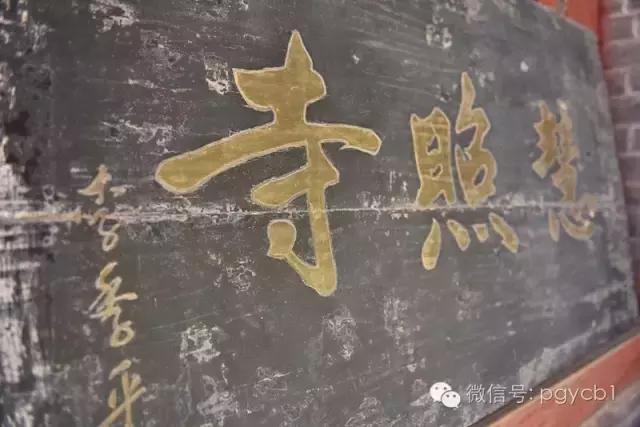 慧照寺
微信号: pgycb1